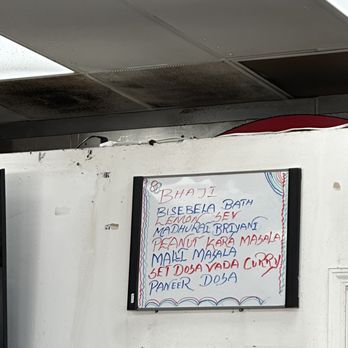 BHAJI
BISEBELA BATH
LEMON SEV
MADHURAI BRIYANI
PEANUT KARA MASALA
MALLI MASALA
SET DOSA VADA CURRY
PANEER DOSA